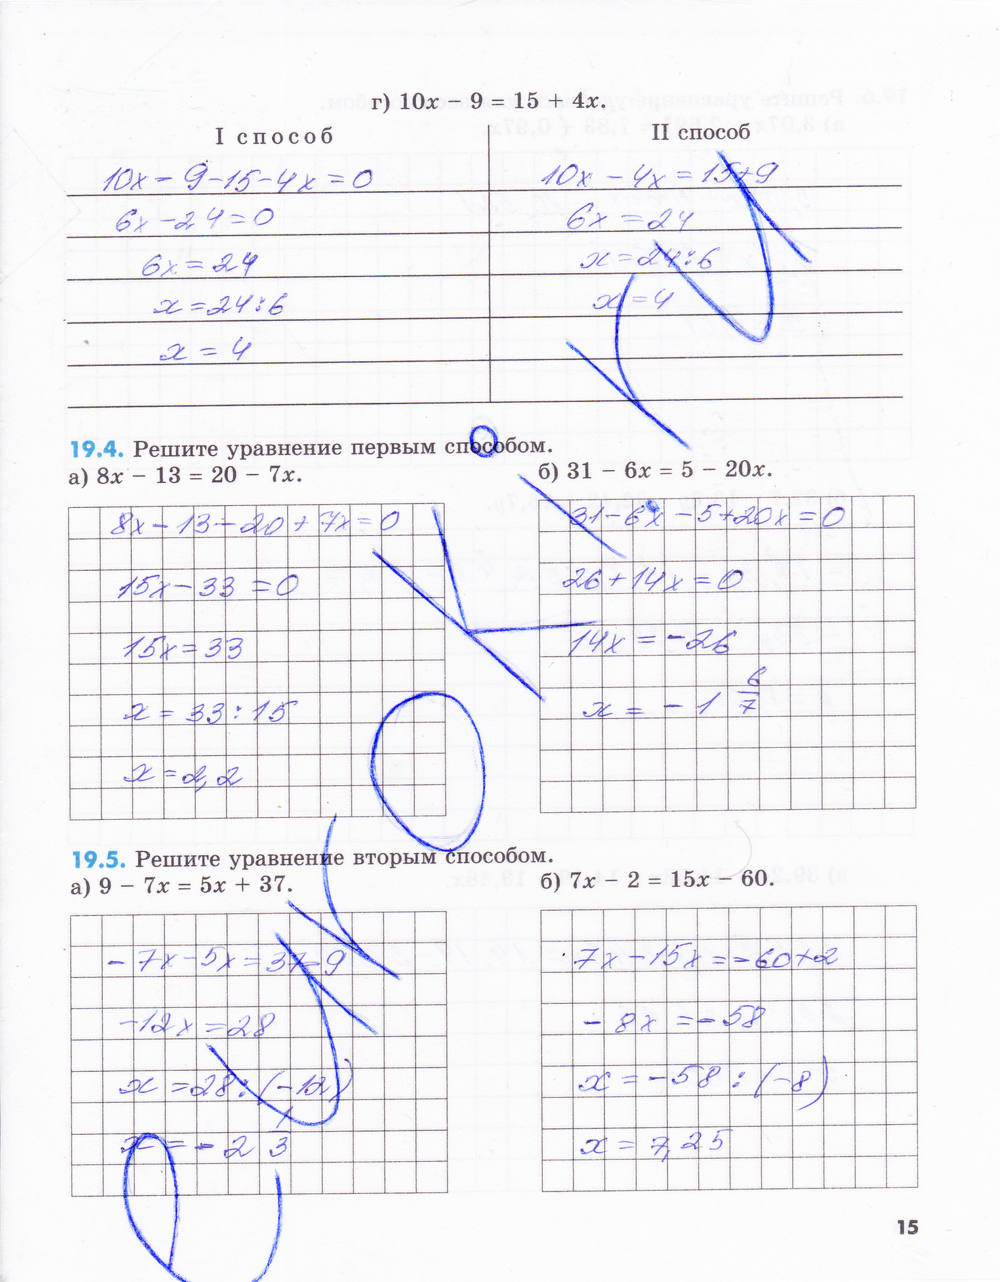 г) 10x − 9 = 15 + 4x.
I способ
II способ
10x − 9 − 15 − 4x = 0
10x − 4x = 15 + 9
6x − 24 = 0
6x = 24
6x = 24
x = 24 : 6
x = 24 : 6
x = 4
x = 4
19.4. Решите уравнение первым способом.
а) 8x − 13 = 20 − 7x.
б) 31 − 6x = 5 − 20x.
8x − 13 − 20 + 7x = 0
31 − 6x − 5 + 20x = 0
15x − 33 = 0
26 + 14x = 0
15x = 33
14x = −26
x = 33 : 15
x = −1 6/7
x = 2,2
19.5. Решите уравнение вторым способом.
а) 9 − 7x = 5x + 37.
б) 7x − 2 = 15x − 60.
−7x − 5x = 37 − 9
7x − 15x = −60 + 2
−12x = 28
−8x = −58
x = 28 : (−12)
x = −58 : (−8)
x = −2 1/3
x = 7,25
15